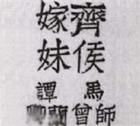 齊侯
嫁妹
馬師曾
譚蘭卿